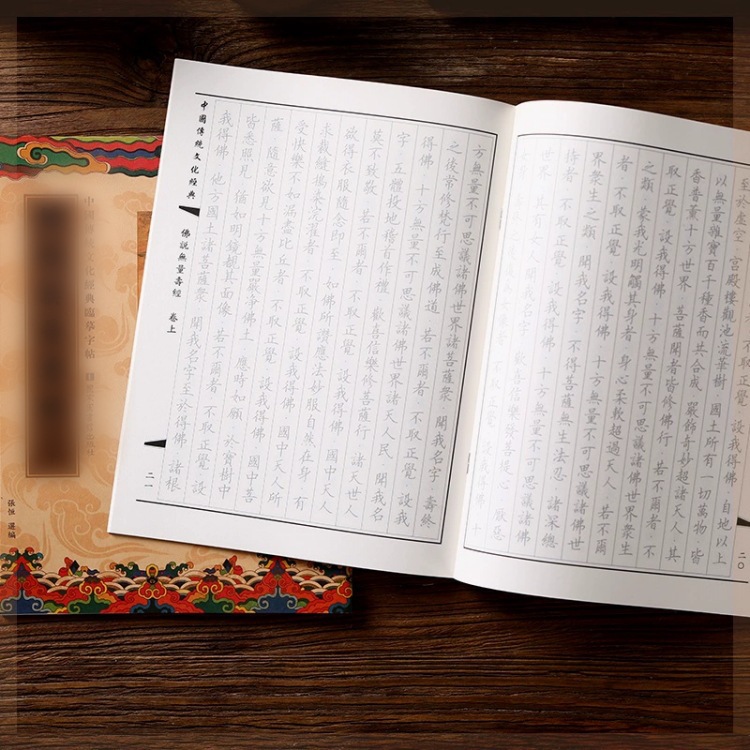 不取正覺 設我得佛 自地以上
至於虛空 宮殿樓觀池流華樹 國土所有一切萬物 皆
以無量雜寶百千種香而共合成 嚴飾奇妙超諸天人 其
香普薰十方世界 菩薩聞者皆修佛行 若不爾者 不
取正覺 設我得佛 十方無量不可思議諸佛世界眾生
之類 蒙我光明觸其身者 身心柔軟超過天人 若不爾
者 不取正覺 設我得佛 十方無量不可思議諸佛世
界眾生之類 聞我名字 不得菩薩無生法忍 諸深總
持者 不取正覺 設我得佛 十方無量不可思議諸佛
世界 其有女人聞我名字 歡喜信樂發菩提心 厭惡
不取正覺 設我得佛 十
二〇
方無量不可思議諸佛世界諸菩薩眾 聞我名字 壽終
之後常修梵行至成佛道 若不爾者 不取正覺 設我
得佛 十方無量不可思議諸佛世界諸天人民 聞我名
字 五體投地稽首作禮 歡喜信樂修菩薩行 諸天世人
莫不致敬 若不爾者 不取正覺 設我得佛 國中天人
欲得衣服隨念即至 如佛所讚應法妙服自然在身 有
求裁縫擣染浣濯者 不取正覺 設我得佛 國中天人所
受快樂不如漏盡比丘者 不取正覺 設我得佛 國中菩
薩 隨意欲見十方無量嚴淨佛土 應時如願 於寶樹中
皆悉照見 猶如明鏡覩其面像 若不爾者 不取正覺 設
我得佛 他方國土諸菩薩眾 聞我名字至於得佛 諸根
中國傳統文化經典
佛說無量壽經 卷上
二一
中國傳統文化經典臨摹字帖
張恒 選編